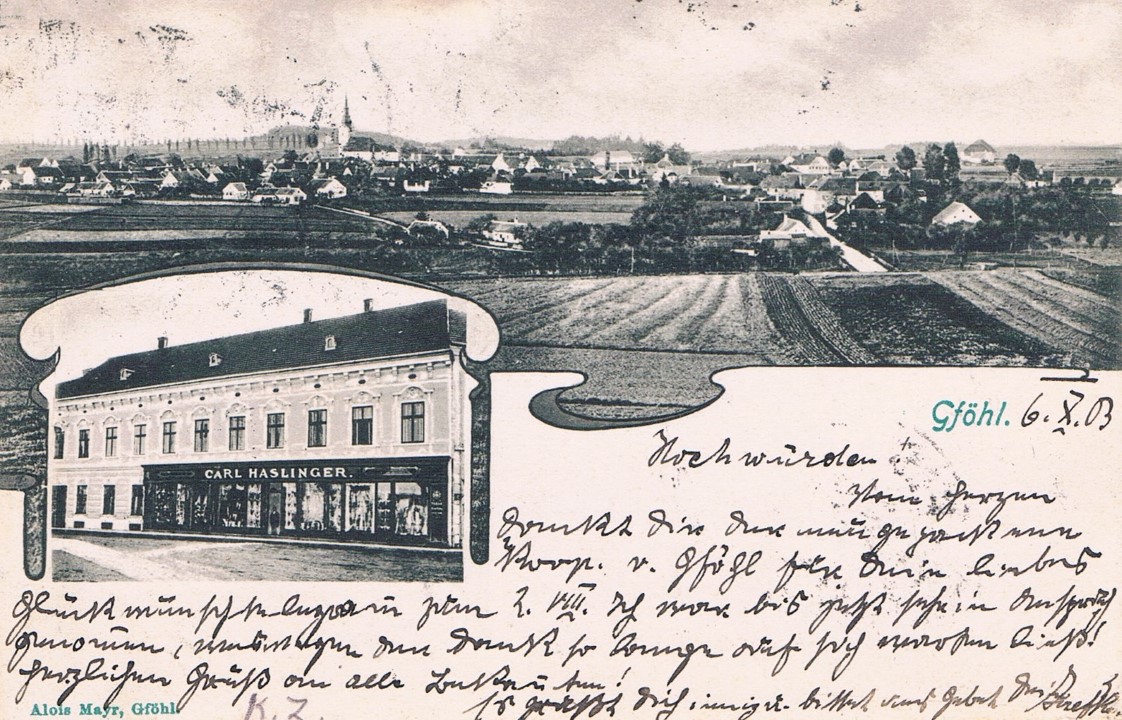 CARL HASLINGER
Gföhl. 6. X. 03
Hochwürden
Vom Herzen
dankt dir der neugebackene
Koop. v. Gföhl für dein liebes
Glückwunschtelegram zum 2. VIII. Ich war bis jetzt sehr in Anspruch
genommen, weswegen der Dank so lange auf sich warten ließ!
Herzlichen Gruß an alle Bekannten!
Es grüßt dich innig u. bittet ums Gebet dein
Alois Mayr, Gföhl.
K. Z.